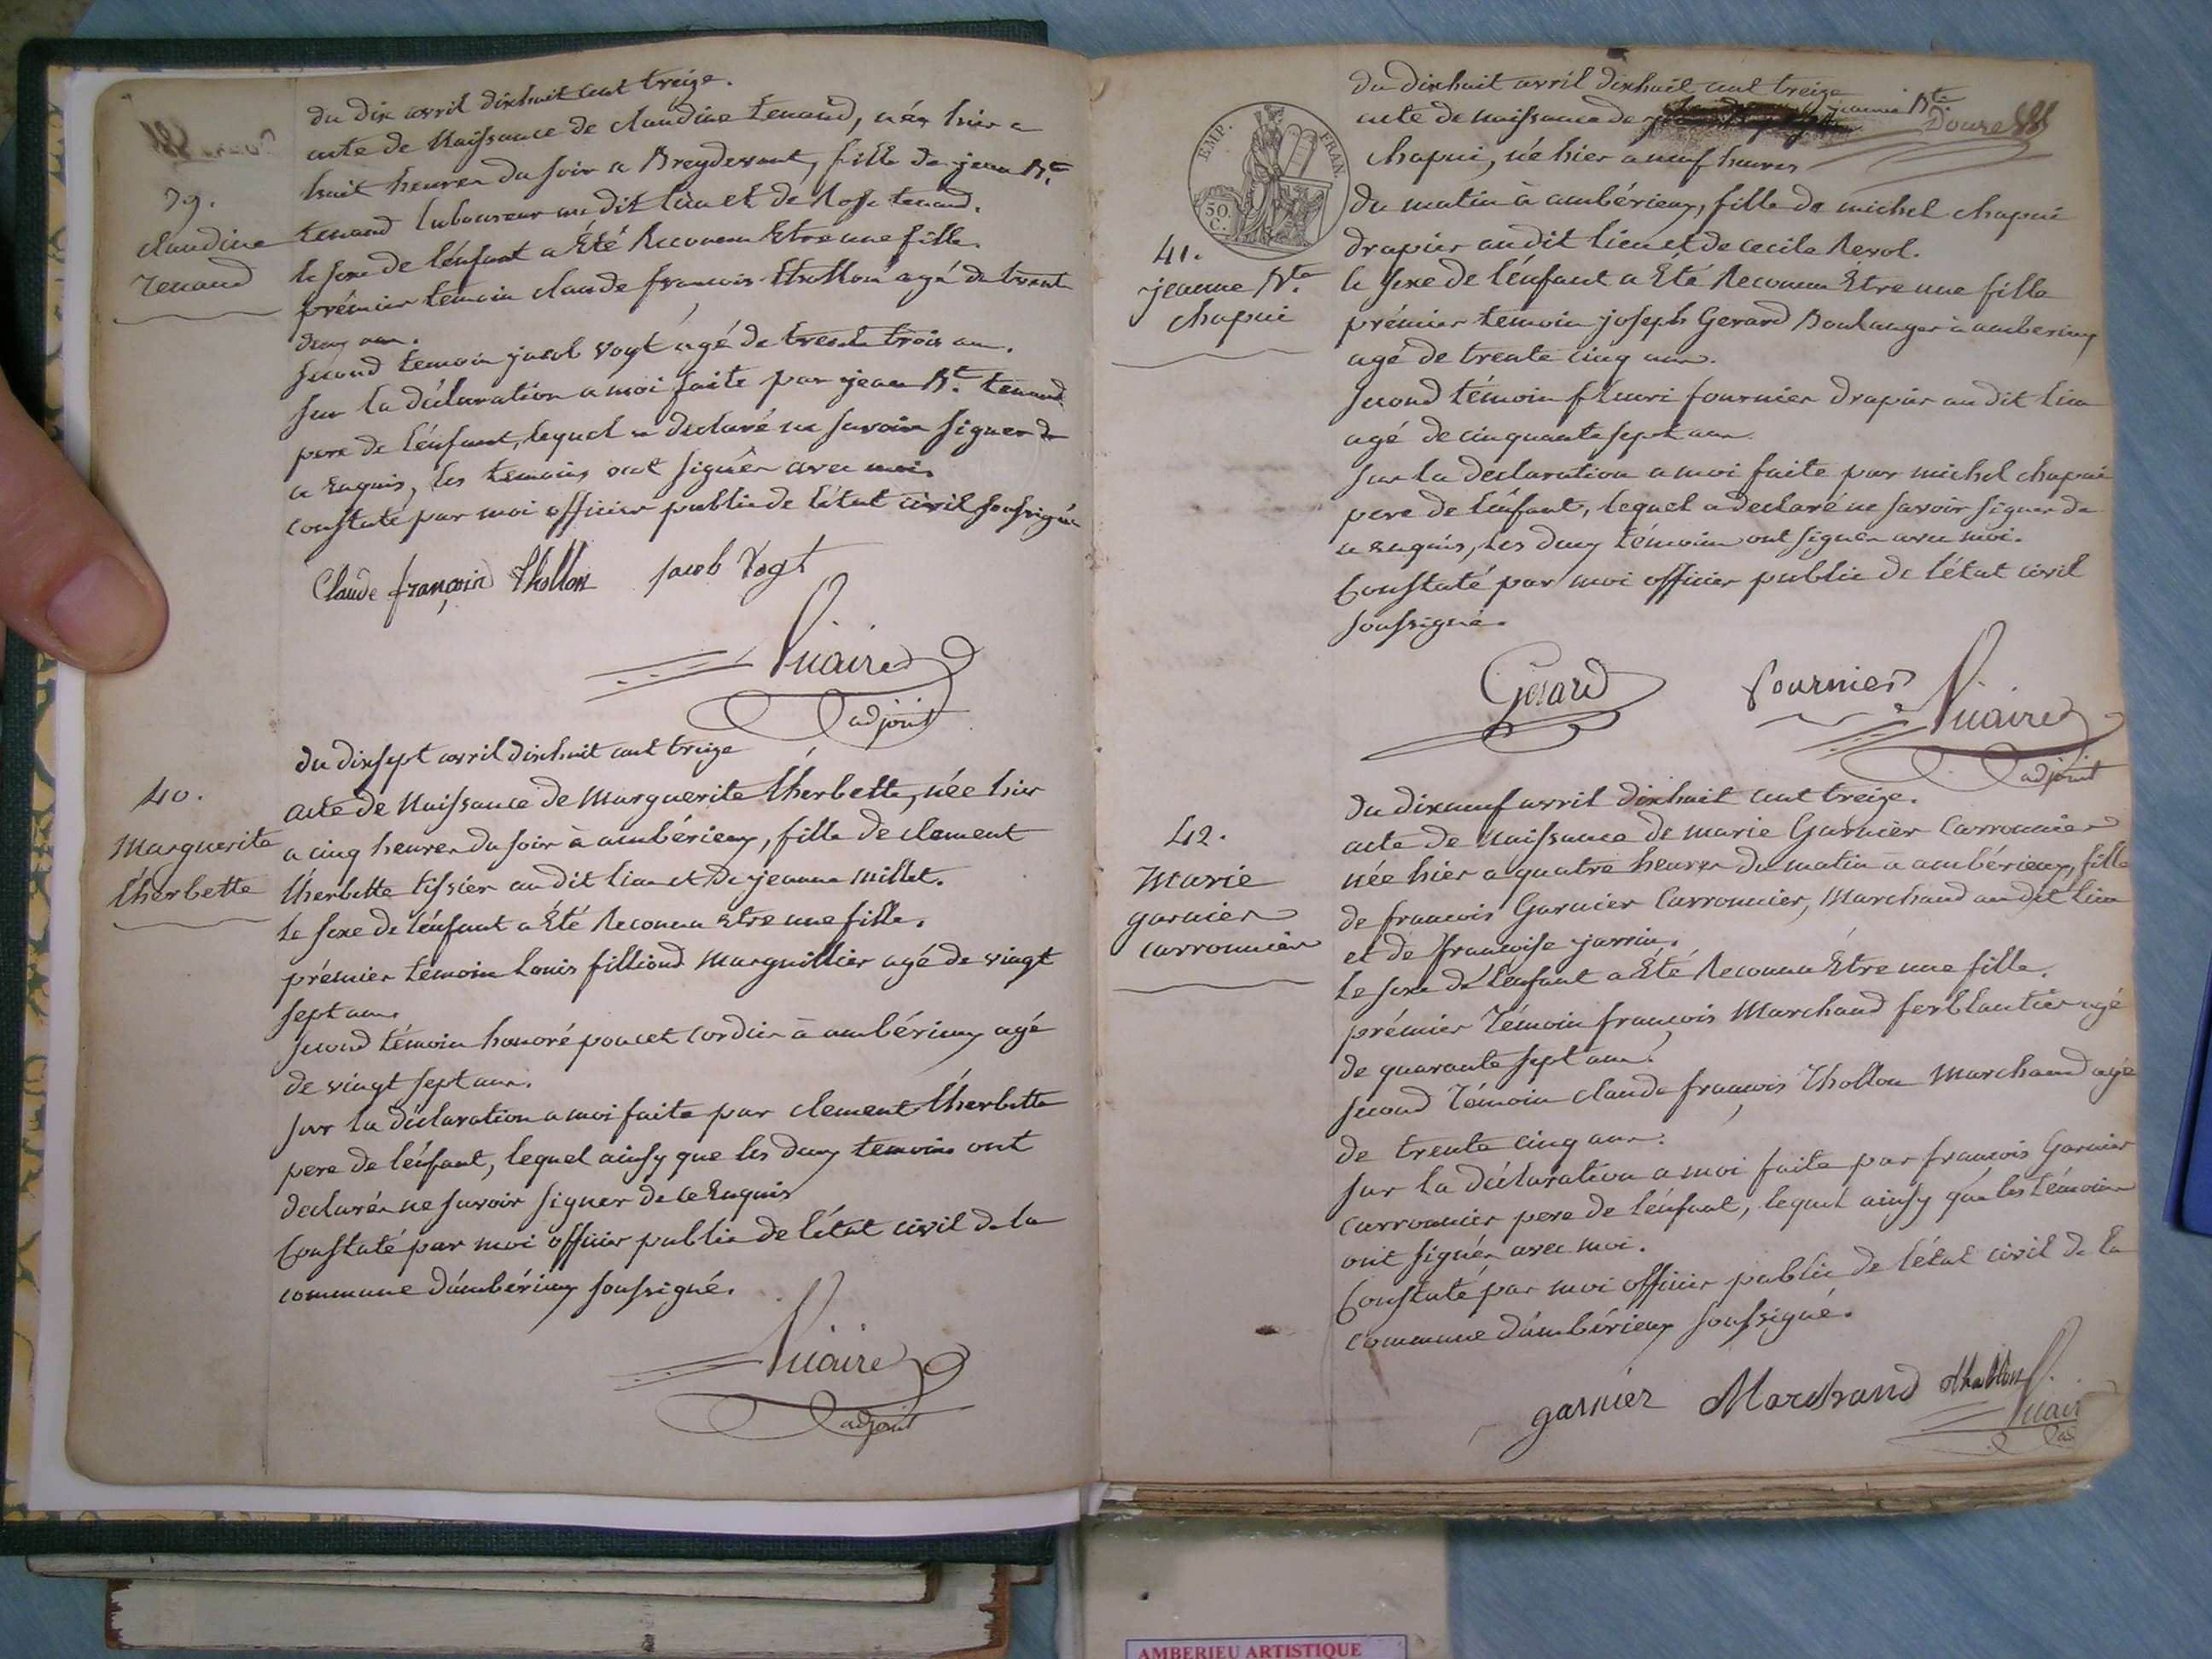 39.
claudine
Tenand
du dix avril dixhuit cent treize.
acte de Naissance de claudine tenand, née hier a
huit heures du soir a Breydevent, fille de jean Bte
tenand laboureur au dit lieu et de Rose tenand.
le sexe de l'énfant a Été Reconnu Etre une fille.
prémier témoin claude francois thollon agé de trente
deux ans.
second temoin jacob Vogt agé de trente trois ans.
sur la déclaration a moi faite par jean Bte. tenand
pere de l'énfant, lequel a declaré ne savoir signer de
ce Enquis, les temoins ont signés avec moi.
constaté par moi officier public de l'état civil soussigné
Claude françois Thollon jacob Vogt
Vicaire
adjoint
40.
Marguerite
l'herbette
du dixsept avril dixhuit cent treize
acte de Naissance de Marguerite l'herbette, née hier
a cinq heures du soir à ambérieux, fille de clement
l'herbette tissier au dit lieu et de jeanne millet.
le sexe de l'énfant a Été Reconnu Etre une fille.
prémier témoin Louis filliond Marguillier agé de vingt
sept ans.
second témoin honoré poncet cordier à ambérieux agé
de vingt sept ans.
sur la déclaration a moi faite par clement l'herbette
pere de l'énfant, lequel ainsy que les deux temoins ont
declarés ne savoir signer de ce Enquis
Constaté par moi officier public de l'état civil de la
commune d'ambérieux soussigné.
Vicaire
adjoint
EMP. FRAN.
50.
C.
41.
jeanne Bte
chapui
du dixhuit avril dixhuit cent treize
acte de naissance de jeanne Bte
chapui, née hier a neuf heures
du matin à ambérieux, fille de michel chapui
drapier au dit lieu et de cecile Revol.
le sexe de l'énfant a Été Reconnu Etre une fille
prémier temoin joseph Gerard Boulanger à amberieux
agé de trente cinq ans.
second témoin fleuri fournier drapier au dit lieu
agé de cinquante sept ans.
sur la declaration a moi faite par michel chapui
pere de l'énfant, lequel a declaré ne savoir signer de
ce enquis, les deux témoins ont signés avec moi.
Constaté par moi officier public de l'état civil
soussigné.
Gerard fournier Vicaire
adjoint
42.
Marie
garnier
carronnier
du dixneuf avril dixhuit cent treize.
acte de naissance de marie Garnier Carronnier
née hier a quatre heures du matin à ambérieux, fille
de francois Garnier Carronnier, Marchand au dit lieu
et de francoise jarrin.
Le sexe de l'énfant a Été Reconnu Etre une fille.
prémier Témoin francois Marchand ferblantier agé
de quarante sept ans.
second Témoin claude francois Thollon Marchand agé
de trente cinq ans.
sur la déclaration a moi faite par francois Garnier
carronnier pere de l'énfant, lequel ainsy que les témoins
ont signés avec moi.
Constaté par moi officier public de l'état civil de la
commune d'ambérieux soussigné.
garnier Marchand thollon
Vicair
AMBERIEU ARTISTIQUE